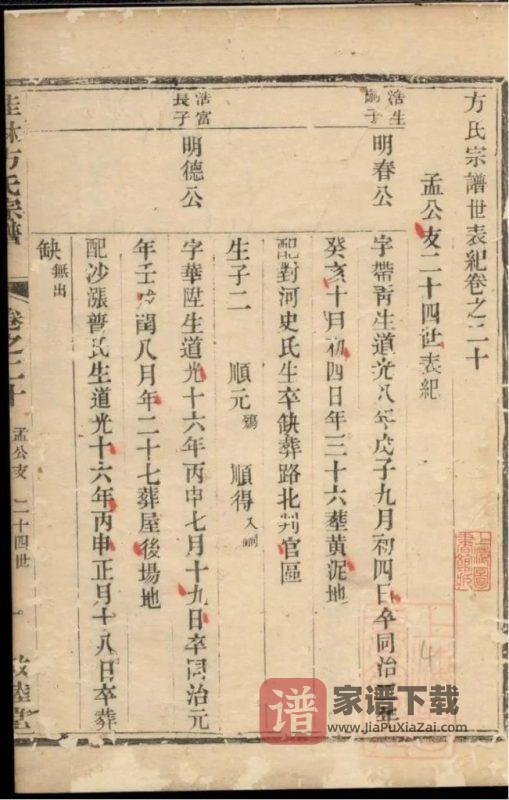 方氏宗譜世表紀卷之二十
孟公支二十四世表紀
活生
嗣子
明春公
字帶青生道光八年戊子九月初四日卒同治二年
癸亥十月初四日年三十六葬黃泥地
配對河史氏生卒缺葬路北判官區
生子二 順元殤 順得入嗣
浩富
長子
明德公
字華陞生道光十六年丙申七月十九日卒同治元
年壬戌閏八月年二十七葬屋後場地
配沙漲曹氏生道光十六年丙申正月十八日卒葬
缺無出
桂林方氏宗譜
卷之二十
孟公支 二十四世
一
敦睦堂
上海圖
書館藏
4
谱
家谱下载
www.JiaPuXiaZai.com